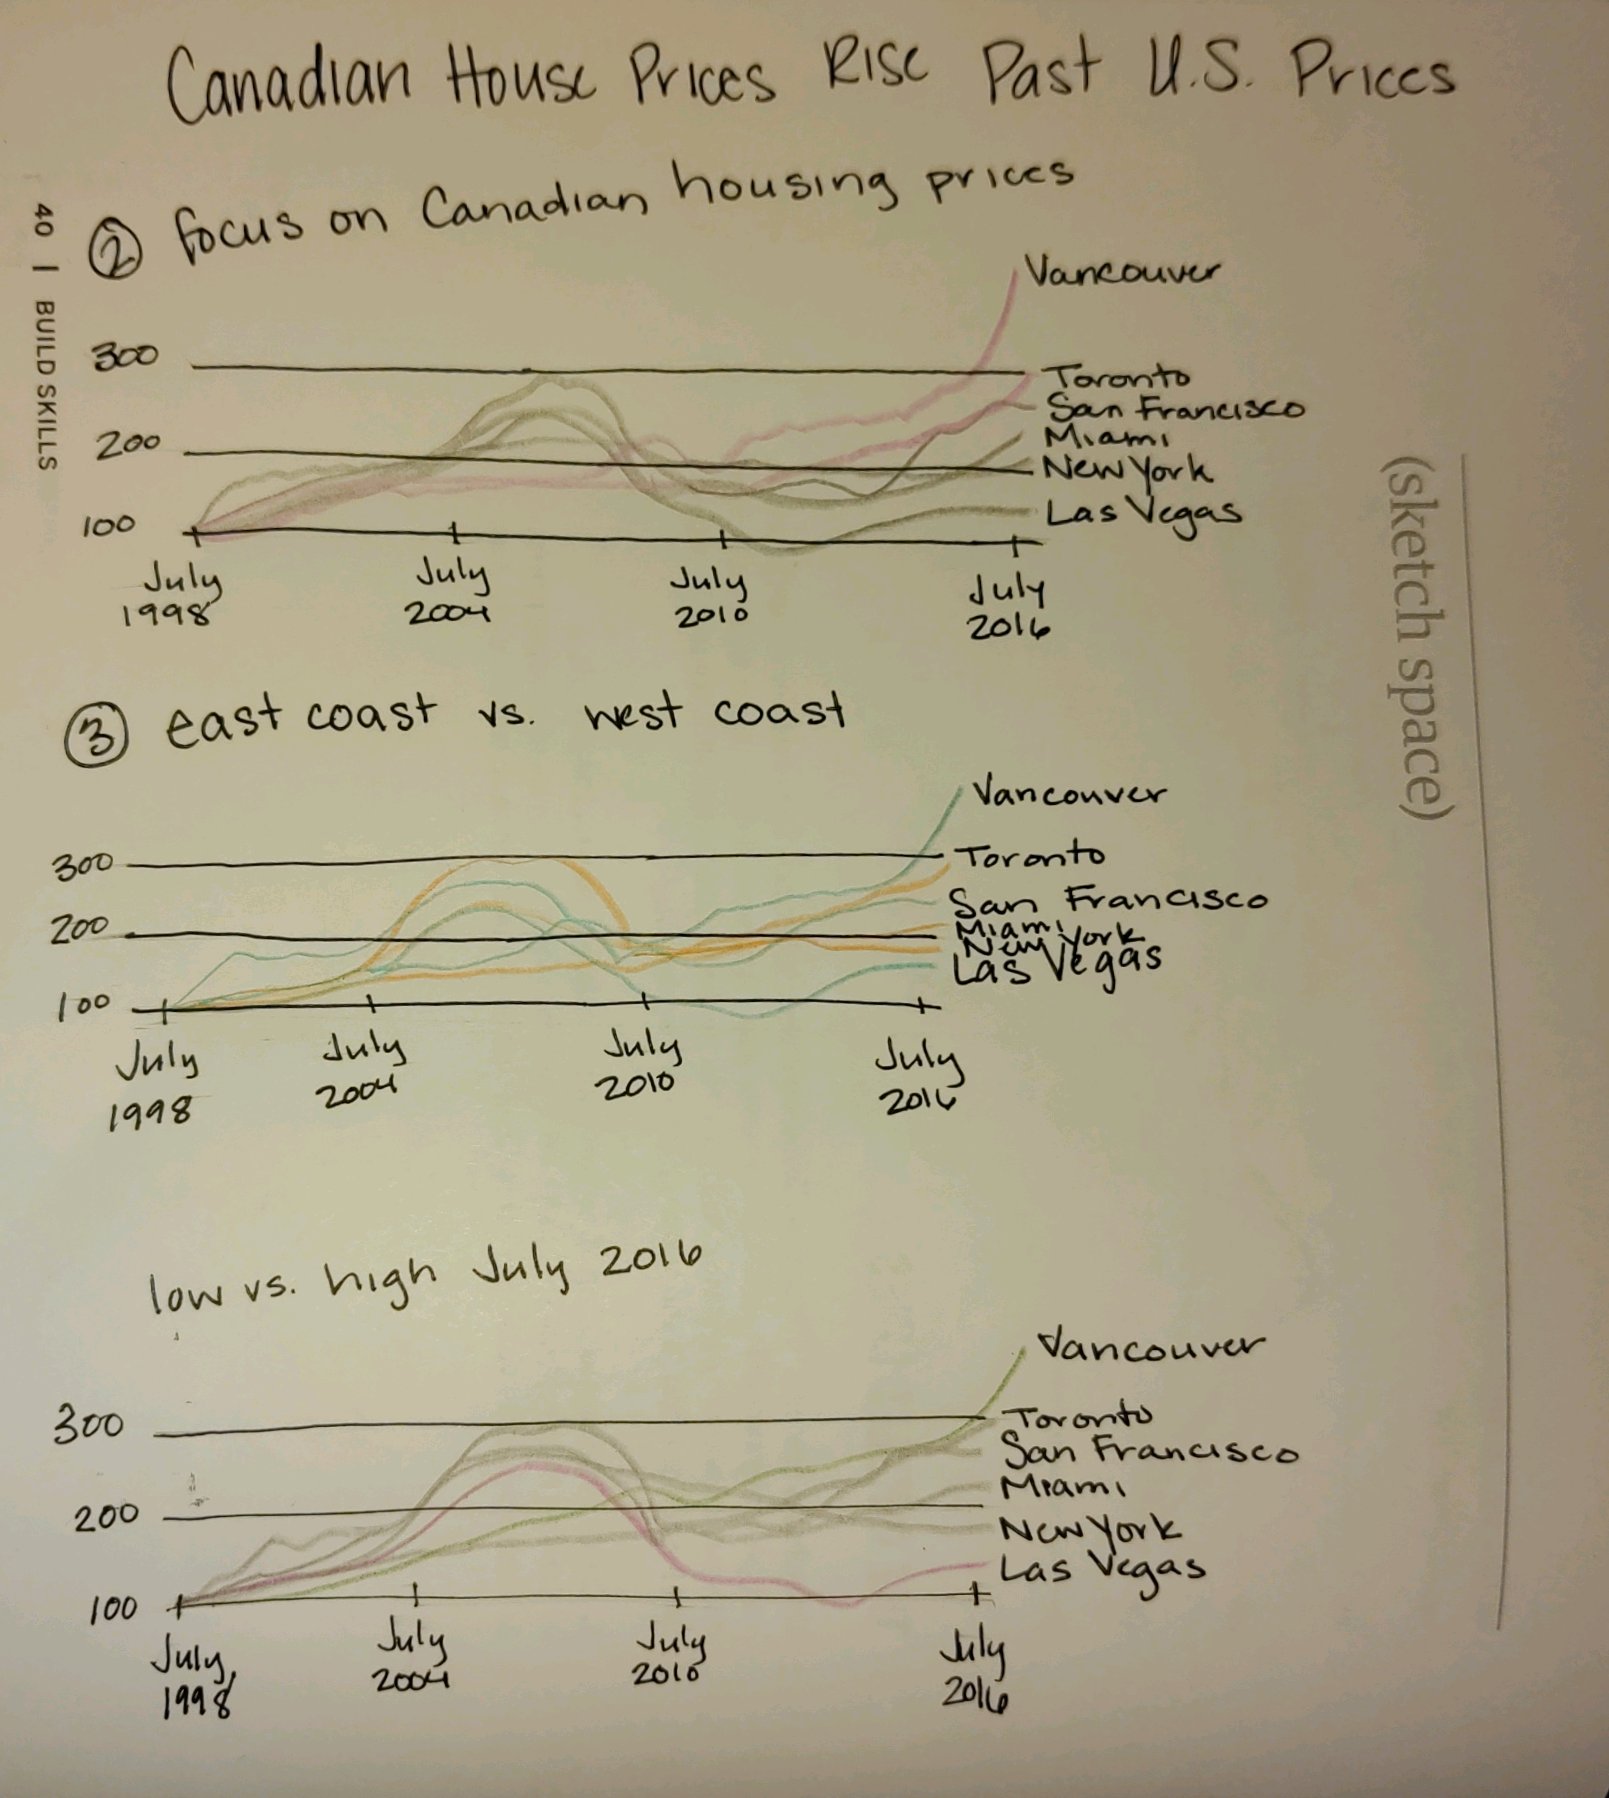 Canadian House Prices Rise Past U.S. Prices
40 | BUILD SKILLS
(sketch space)
2 focus on Canadian housing prices
Vancouver
300
Toronto
San Francisco
200
Miami
New York
100
Las Vegas
July 1998
July 2004
July 2010
July 2016
3 east coast vs. west coast
Vancouver
300
Toronto
San Francisco
200
Miami
New York
Las Vegas
100
July 1998
July 2004
July 2010
July 2016
low vs. high July 2016
Vancouver
300
Toronto
San Francisco
Miami
200
New York
Las Vegas
100
July 1998
July 2004
July 2010
July 2016